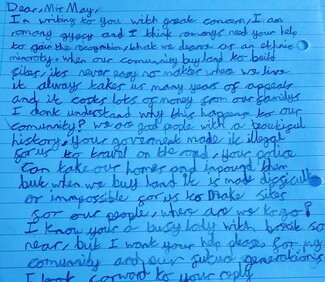 Dear, Mrs May,
I'm writing to you with great concern, I am
romany gypsy and I think romanys need your help
to gain the recognition, what we deserve as an ethnic
minoroty. when our comunity buy land to build
sites, its never easy no matter where we live
it always takes us many years of appeals
and it costs lots of money from our familys
I dont understand why this happens to our
comunity? we are good people with a beautiful
history, your government made it illegal
for us to travel on the road, your police
can take our homes and impound them
but when we buy land it is made difficult
or impossible for us to make sites
for our people, where are we to go?
I know your a busy lady with brexit so
near, but I want your help please for my
comunity and our future generations
I look forward to your reply